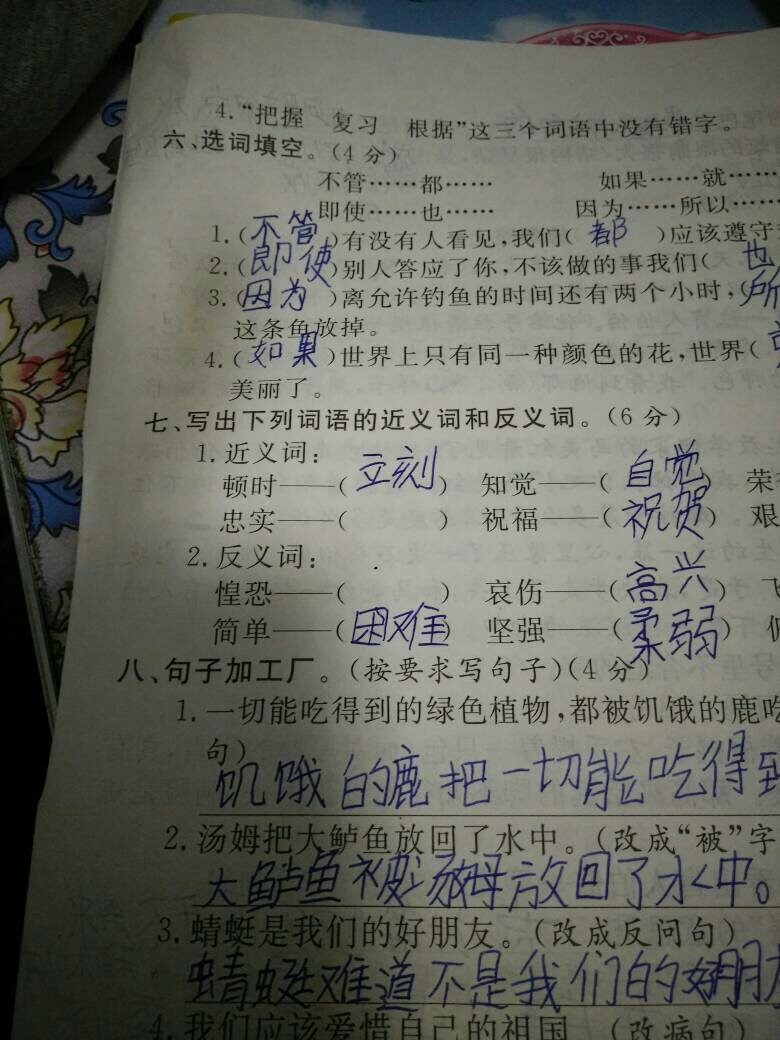 4.“把握 复习 根据”这三个词语中没有错字。
六、选词填空。(4分)
不管……都…… 如果……就……
即使……也…… 因为……所以……
1.(不管)有没有人看见,我们(都)应该遵守
2.(即使)别人答应了你,不该做的事我们(也
3.(因为)离允许钓鱼的时间还有两个小时,(所
这条鱼放掉。
4.(如果)世界上只有同一种颜色的花,世界(
美丽了。
七、写出下列词语的近义词和反义词。(6分)
1.近义词:
顿时——(立刻) 知觉——(自觉) 荣
忠实——( ) 祝福——(祝贺) 艰
2.反义词:
惶恐——( ) 哀伤——(高兴) 飞
简单——(困难) 坚强——(柔弱) 俯
八、句子加工厂。(按要求写句子)(4分)
1.一切能吃得到的绿色植物,都被饥饿的鹿吃
句)
饥饿的鹿把一切能吃得到
2.汤姆把大鲈鱼放回了水中。(改成“被”字
大鲈鱼被汤姆放回了水中。
3.蜻蜓是我们的好朋友。(改成反问句)
蜻蜓难道不是我们的好朋友
4.我们应该爱惜自己的祖国 (改病句)